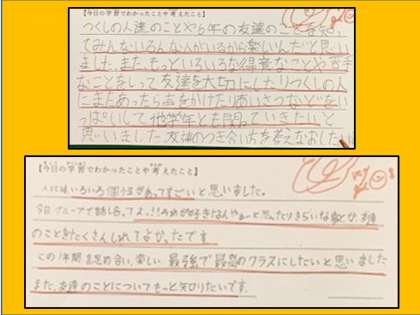 【今日の学習でわかったことや考えたこと】
つくしの人達のことや6年の友達のことを知っ
てみんないろんな人がいるから楽しいんだと思い
ました。また、もっといろいろな得意なことや苦手
なことをしって友達を大切にしたりつくしの人
にまたあったら声をかけたりあいさつなどをい
っぱいして他学年とも関っていきたいと
思いました 友達のつき合い方を考えなおしたい
【今日の学習でわかったことや考えたこと】
人にはいろいろ個性があってすごいと思いました。
今日、グループで話し合って、
が好きなんやぁーと思ったりきらいな
のことをたくさんしれてよかったです
この1年間を認め合い、楽しい 最強で最高のクラスにしたいと思いました
また、友達のことについてもっと知りたいです。